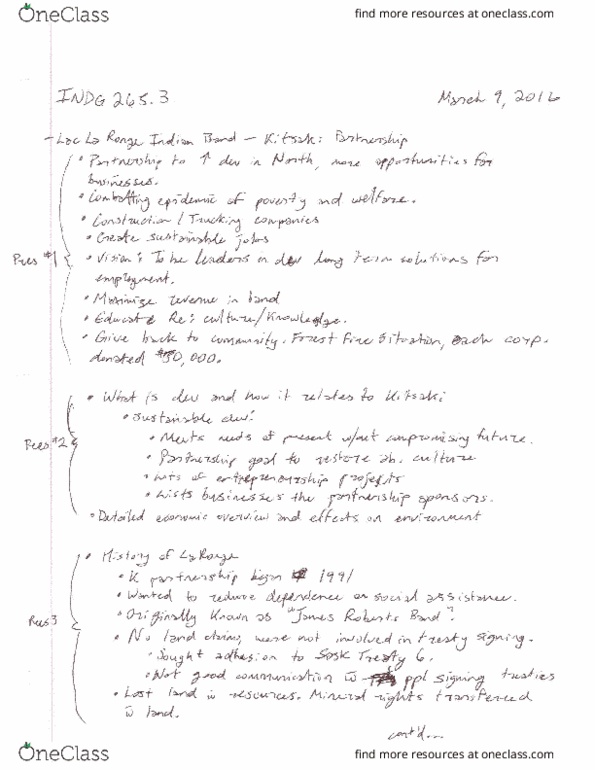 OneClass
find more resources at oneclass.com
INDG 265.3
March 9, 2016
- Lac La Ronge Indian Band - Kitsaki Partnership
• Partnership to ↑ dev in North, more opportunities for
businesses.
• Combatting epidemic of poverty and welfare.
• Construction / Trucking companies
• Create sustainable jobs
Pres #1
• Vision: To be leaders in dev long term solutions for
employment.
• Maximize revenue in band
• Educate Re: culture/Knowledge.
• Give back to community. Forest Fire Situation, each corp.
donated 50,000.
• What is dev and how it relates to Kitsaki
• Sustainable dev:
Pres #2
• Meets needs of present w/out compromising future.
• Partnership goal to restore ab. culture
• Lots of entrepreneurship projects
• Lists businesses the partnership sponsors.
• Detailed economic overview and effects on environment
• History of LaRonge
• K partnership began 1991
• Wanted to reduce dependence on social assistance.
Pres 3
• Originally Known as "James Roberts Band".
• No land claims, were not involved in treaty signing.
• Sought adhesion to Sask Treaty 6.
• Not good communication w̄ ppl signing treaties
• Lost land w̄ resources. Mineral rights transferred
w̄ land.
cont'd...
OneClass
find more resources at oneclass.com